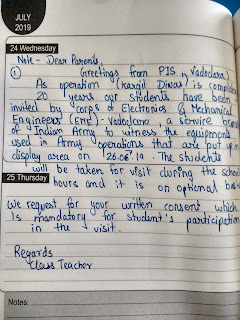 JULY
2019
24 Wednesday
Note - Dear Parents,
① Greetings from PIS, Vadodara!
As operation (Kargil Divas) is completing
20 years our students have been
invited by "Corps of Electronics & Mechanical
Engineers (EME) - Vadodara, a service organ
of Indian Army to witness the equipments
used in Army operations that are put up in
display area on 26.06.19. The students
will be taken for visit during the school
25 Thursday
hours and it is on optional basis
We request for your written consent which
is mandatory for student's participation
in the visit.
Regards
Class Teacher
Notes: